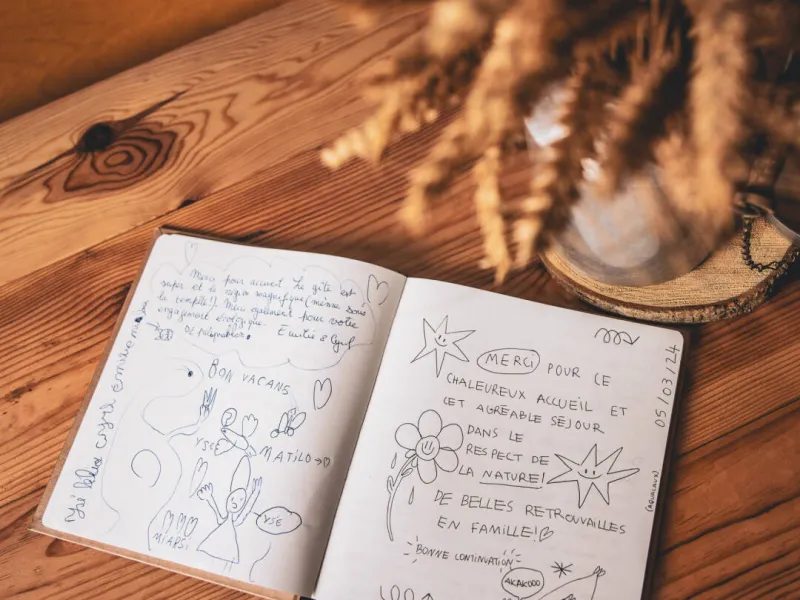 Merci pour accueil Le gîte est
super et la région magnifique (même sous
la tempête!). Merci également pour votre
engagement écologique.
Emilie & Cyril
BON VACANS
MATILO
YSE
YSE
MIARSI
MERCI POUR CE
CHALEUREUX ACCUEIL ET
CET AGRÉABLE SÉJOUR
DANS LE
RESPECT DE
LA NATURE!
DE BELLES RETROUVAILLES
EN FAMILLE!
BONNE CONTINUATION
05/03/24